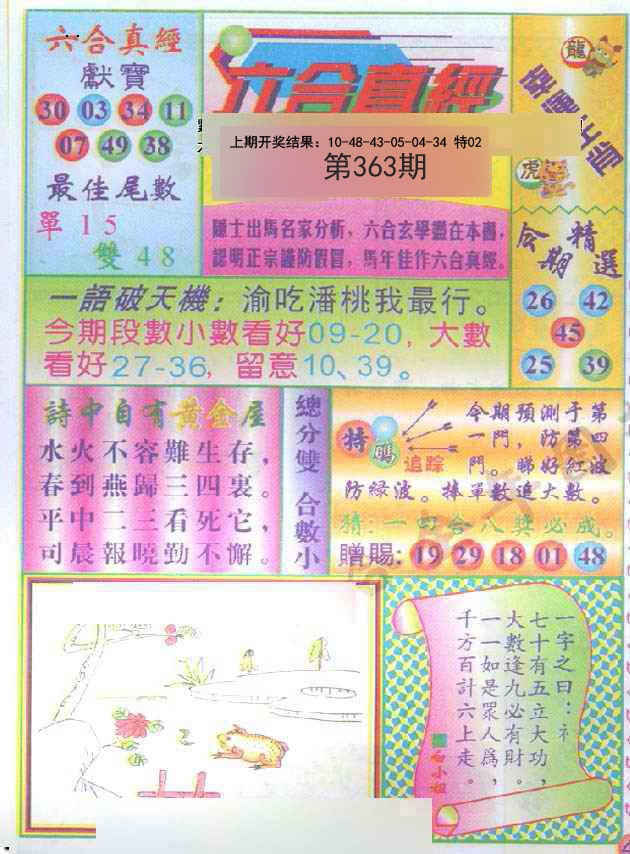 六合真經
獻寶
30 03 34 11
07 49 38
最佳尾數
單15
雙48
六合真經
上期开奖结果：10-48-43-05-04-34 特02
第363期
隱士出馬名家分析，六合玄學盡在本圖，
認明正宗謹防假冒，馬年佳作六合真經。
龍
虎
今期精選
26 42
45
25 39
一語破天機：渝吃潘桃我最行。
今期段數小數看好09-20，大數
看好27-36，留意10、39。
詩中自有黃金屋
水火不容難生存，
春到燕歸三四裏。
平中二三看死它，
司晨報曉勤不懈。
總分雙 合數小
特碼
追踪
今期預測于第
一門，防第四
門。睇好紅波
防緑波。捧單數追大數。
猜：一四合八獎必成。
贈賜：19 29 18 01 48
一字之曰：礻
七十有五立大功，
大數逢九必有財。
一一如是眾人爲，
千方百計六上走。
白小姐